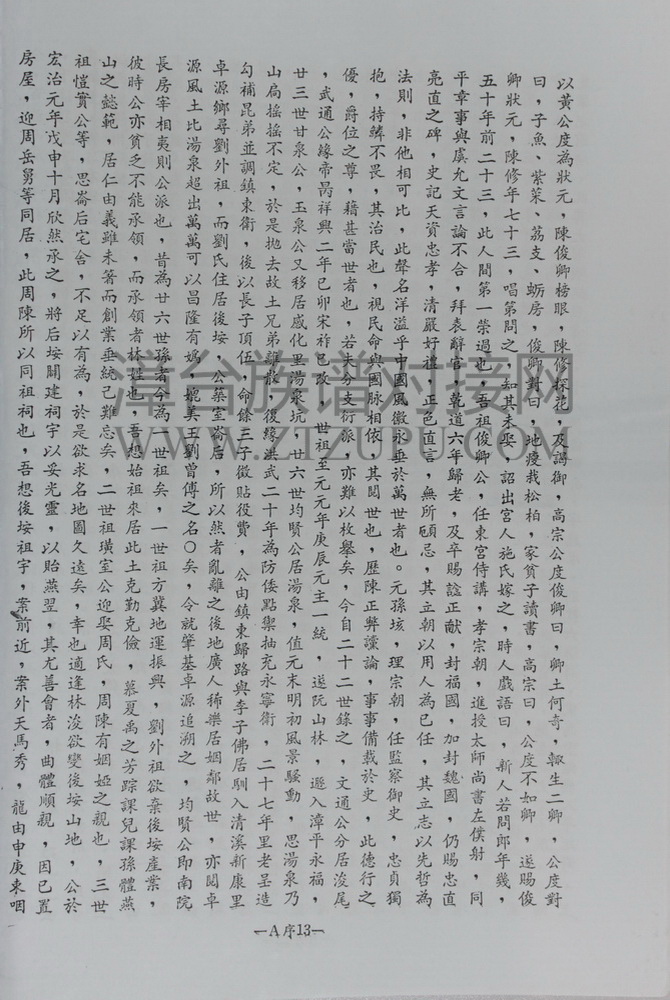 以黃公度為狀元，陳俊卿榜眼，陳修探花，及謁御，高宗公度俊卿曰，卿土何奇，輙生二卿，公度對
曰，子魚、紫菜、荔支、蛎房，俊卿對曰，地瘦栽松柏，家貧子讀書，高宗曰，公度不如卿，遂賜俊
卿狀元，陳修年七十三，唱第問之，知其未娶，詔出宮人施氏嫁之，時人戲語曰，新人若問郎年幾，
五十年前二十三，此人間第一崇過也，吾祖俊卿公，任東宮侍講，孝宗朝，進授太師尚書左僕射，同
平章事與虞允文言論不合，拜表辭官，乾道六年歸老，及卒賜諡正献，封福國，加封魏國，仍賜忠直
亮直之碑，史記天資忠孝，清嚴好禮，正色直言，無所頋忌，其立朝以用人為已任，其立志以先哲為
法則，非他相可比，此聲名洋溢乎中國風徽永垂於萬世者也。元孫垓，理宗朝，任監察御史，忠貞獨
抱，持韓不畏，其治民也，視民命與國脉相依，其閱世也，歷陳正弊讜論，事事備載於史，此德行之
優，爵位之尊，藉甚當世者也，若夫分支衍派，亦難以枚擧矣，今自二十二世錄之，文通公分居浚尾
，武通公緣帝昺祥興二年已卯宋祚已改，世祖至元元年庚辰元主一統，遂阮山林，遯入漳平永福，
廿三世廿泉公，玉泉公又移居感化里湯泉坑，廿六世均賢公居湯泉，值元末明初風景騷動，思湯泉乃
山扃搖搖不定，於是抛去故土兄弟離散，復緣洪武二十年為防倭點禦抽充永寧衛，二十七年里老呈造
勾補昆弟並調鎮東衛，後以長子頂伍，命餘三子徵貼役費，公由鎮東歸路與李子佛居馴入清溪新康里
卓源鄉尋劉外祖，而劉氏住居後垵，公築室崙后，所以然者亂離之後地廣人稀樂居姻鄰故世，亦閱卓
源風土比湯泉超出萬萬可以昌隆有媯，媲美王劉曾傅之名〇矣，今就肇基卓源追溯之，均賢公即南院
長房宰相夷則公派也，昔為廿六世孫者今為一世祖矣，一世祖方冀地運振興，劉外祖欲棄後垵產業，
彼時公亦貧乏不能承領，而承領者林姓也，吾想始祖來居此土克勤克儉，慕夏禹之芳踪課兒課孫體燕
山之懿範，居仁由義雖未箸而創業垂統已難忘矣，二世祖璜室公迎娶周氏，周陳有姻婭之親也，三世
祖愷實公等，思崙后宅舍，不足以有為，於是欲求名地圖久遠矣，幸也適逢林浚欲變後垵山地，公於
宏治元年戊申十月欣然承之，將后垵闢建祠宇以妥光靈，以貽燕翌，其尤善會者，曲體順親，因已置
房屋，迎周岳舅等同居，此周陳所以同祖祠也，吾想後垵祖宇，案前近，案外天馬秀，龍由申庚東咽
—A序13—
漳台族谱对接网
WWW.ZTZUPU.COM